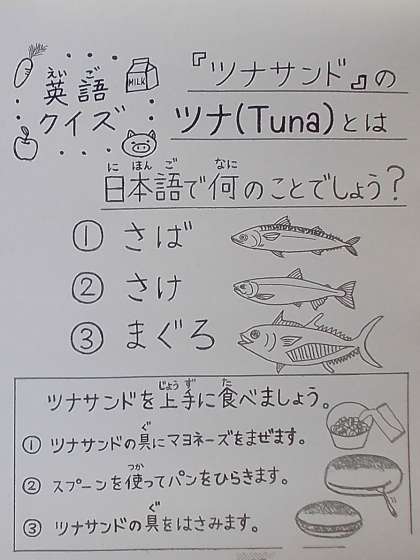 英語
クイズ
MILK
『ツナサンド』の
ツナ(Tuna)とは
日本語で何のことでしょう?
① さば
② さけ
③ まぐろ
ツナサンドを上手に食べましょう。
① ツナサンドの具にマヨネーズをまぜます。
② スプーンを使ってパンをひらきます。
③ ツナサンドの具をはさみます。